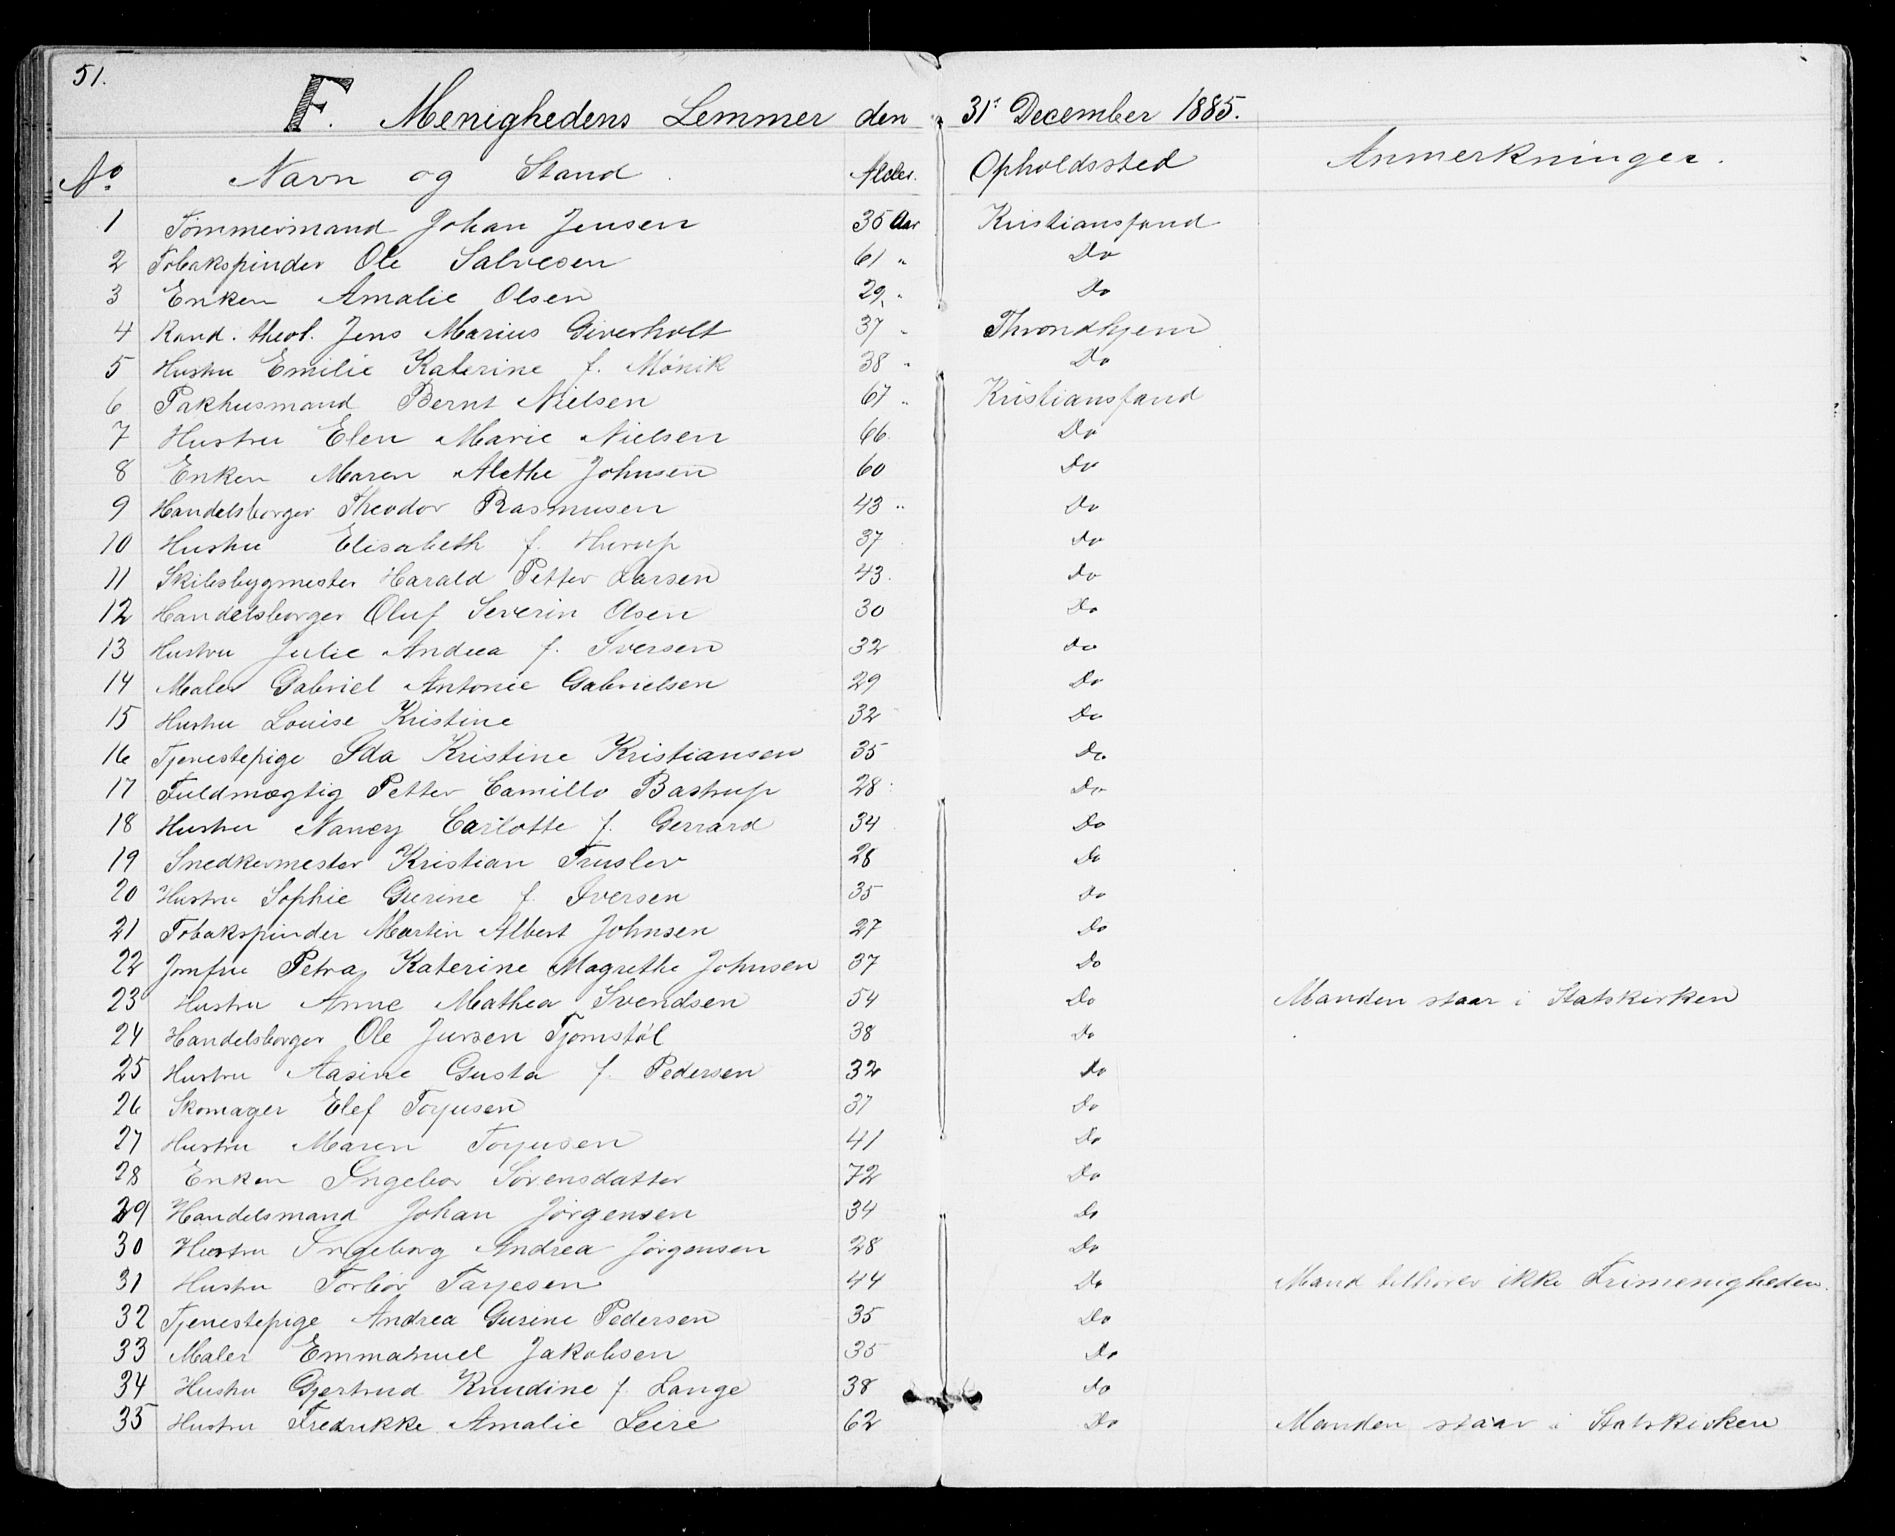 51.
F. Menighedens Lemmer den 31' December 1885.
No Navn og Stand. Alder. Opholdssted Anmerkninger.
1 Tømmermand Johan Jensen 35 Aar Kristianssand
2 Tobakspinder Ole Salvesen 61 " Do
3 Enken Amalie Olsen 29 " Do
4 Kand. theol. Jens Marius Giverholt 37 " Throndhjem
5 Hustru Emilie Katerine f. Mønik 38 " Do
6 Pakhusmand Bernt Nielsen 67 " Kristianssand
7 Hustru Elen Marie Nielsen 66 Do
8 Enken Maren Alethe Johnsen 60 Do
9 Handelsborger Theodor Rasmusen 43 " Do
10 Hustru Elisabeth f. Hurup 37 Do
11 Skibsbygmester Harald Petter Larsen 43. Do
12 Handelsborger Oluf Severin Olsen 30 Do
13 Hustru Julie Andrea f. Iversen 32 Do
14 Maler Gabriel Antonie Gabrielsen 29 Do
15 Hustru Louise Kristine 32 Do
16 Tjenestepige Ida Kristine Kristiansen 35 Do
17 Fuldmægtig Petter Camillo Bastrup 28 Do
18 Hustru Nancy Carlotte f. Gerrard 34 Do
19 Snedkermester Kristian Truslev 28 Do
20 Hustru Sophie Gurine f. Iversen 35 Do
21 Tobakspinder Martin Albert Johnsen 27 Do
22 Jomfru Petra Katerine Magrethe Johnsen 37 Do
23 Hustru Anne Mathea Svendsen 54 Do Manden staar i Statskirken
24 Handelsborger Ole Jensen Tjomstøl 38 Do
25 Hustru Aasine Gusta f. Pedersen 32 Do
26 Skomager Elef Torjusen 37 Do
27 Hustru Maren Torjusen 41 Do
28 Enken Ingebor Sørensdatter 72 Do
29 Handelsmand Johan Jørgensen 34 Do
30 Hustru Ingeborg Andrea Jørgensen 28 Do
31 Hustru Torbor Tarjesen 44 Do Mand tilhører ikke Frimenigheden.
32 Tjenestepige Andrea Gusine Pedersen 35 Do
33 Maler Emmanuel Jakobsen 35 Do
34 Hustru Gjertrud Knudine f. Lange 38 Do
35 Hustru Fredrikke Amalie Leire 62 Do Manden staar i Statskirken